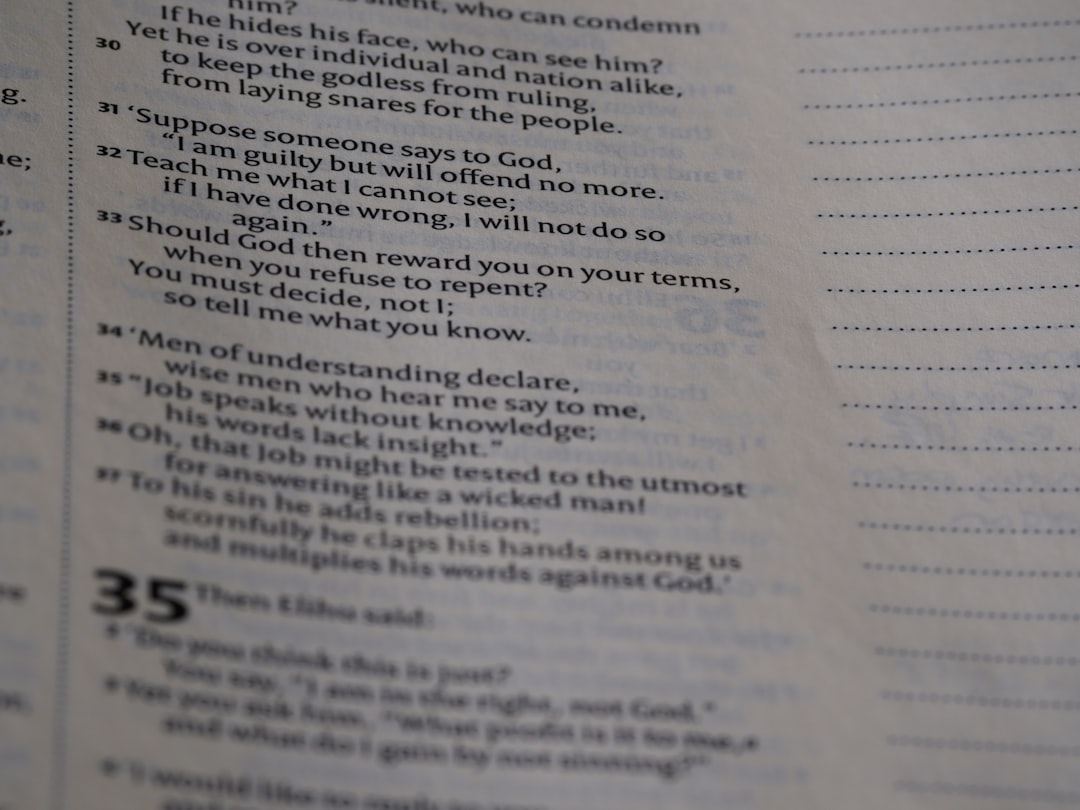 him?
silent, who can condemn
If he hides his face, who can see him?
30 Yet he is over individual and nation alike,
to keep the godless from ruling,
from laying snares for the people.
31 ‘Suppose someone says to God,
“I am guilty but will offend no more.
32 Teach me what I cannot see;
if I have done wrong, I will not do so
again.”
33 Should God then reward you on your terms,
when you refuse to repent?
You must decide, not I;
so tell me what you know.
34 ‘Men of understanding declare,
wise men who hear me say to me,
35 “Job speaks without knowledge;
his words lack insight.”
36 Oh, that Job might be tested to the utmost
for answering like a wicked man!
37 To his sin he adds rebellion;
scornfully he claps his hands among us
and multiplies his words against God.’
35 Then Elihu said:
‘Do you think this is just?
You say, “I am in the right, not God.”
Yet you ask him, “What profit is it to me,
and what do I gain by not sinning?”
‘I would like to